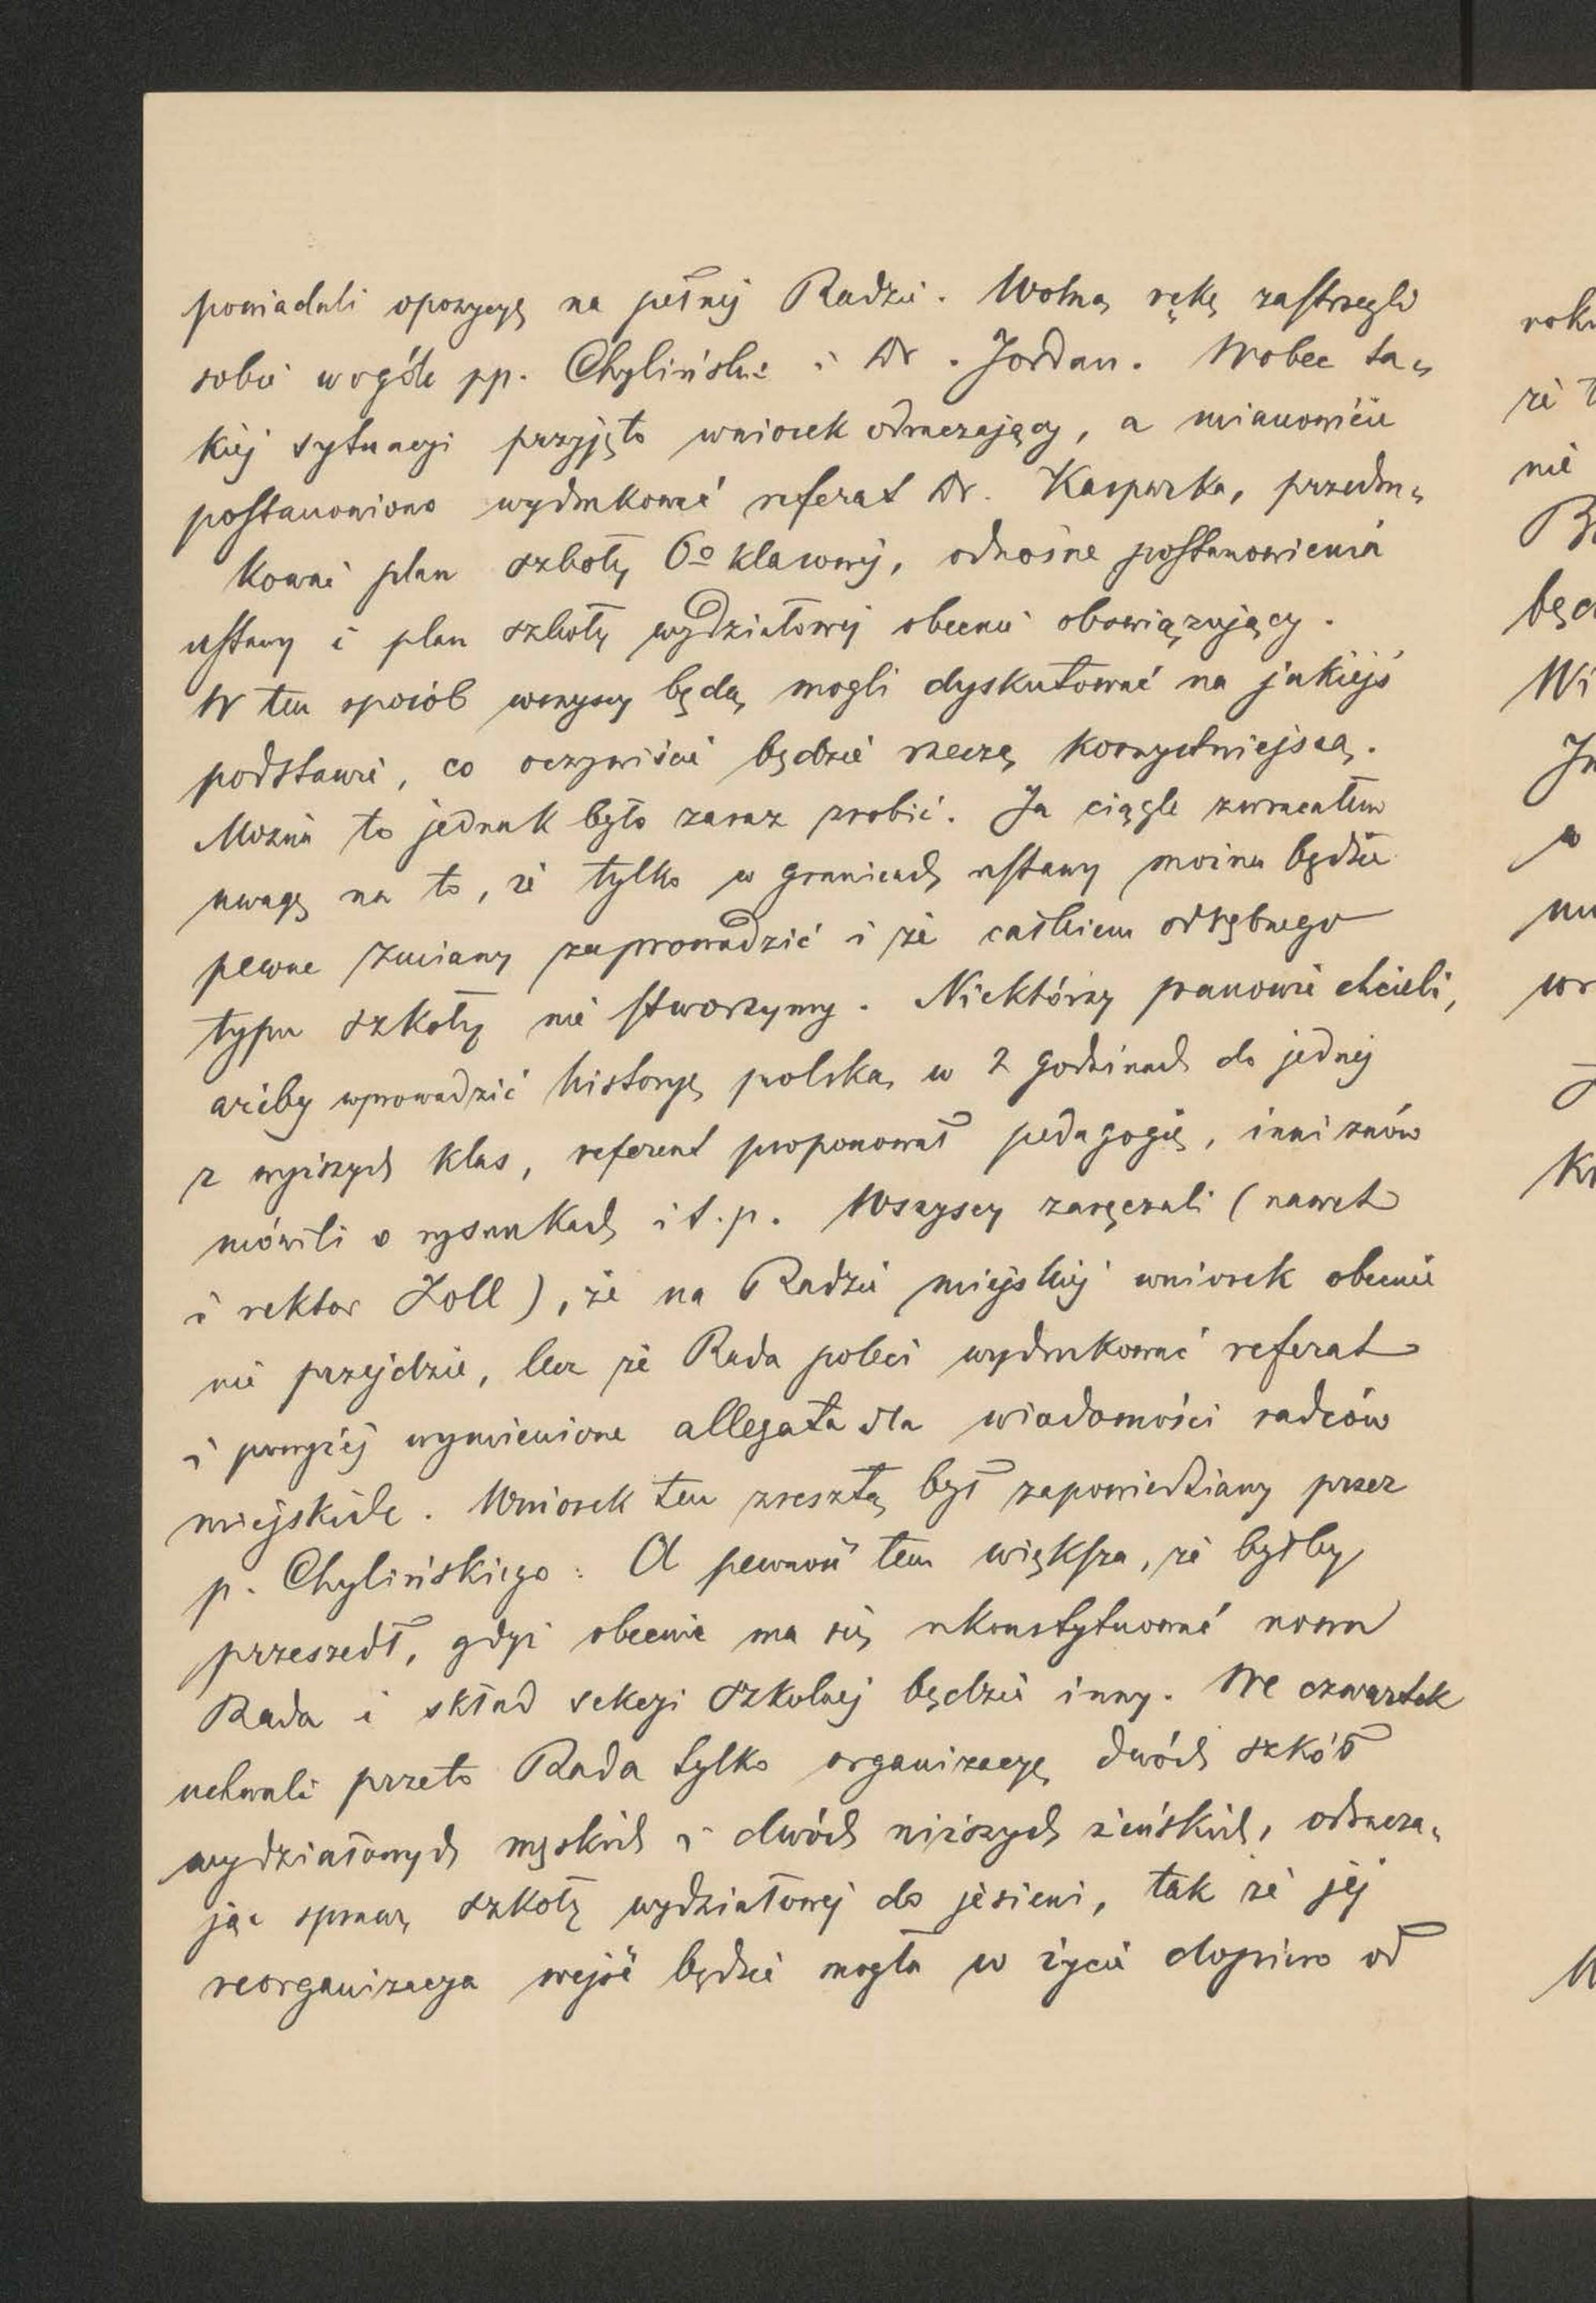 powiadali opozycyę na pełnej Radzie. Wolną rękę zastrzegli
sobie wogóle pp. Chyliński i Dr. Jordan. Wobec ta„
kiej sytuacyi przyjęto wniosek odraczający, a mianowicie
postanowiono wydrukować referat Dr. Kasparka, przedru„
kować plan szkoły 6o klasowej, odnośne postanowienia
ustawy i plan szkoły wydziałowej obecnie obowiązujący.
W ten sposób wszyscy będą mogli dyskutować na jakiejś
podstawie, co oczywiście będzie rzeczą korzystniejszą.
Można to jednak było zaraz zrobić. Ja ciągle zwracałem
uwagę na to, że tylko w granicach ustawy można będzie
pewne zmiany zaprowadzić i że całkiem odrębnego
typu szkoły nie stworzymy. Niektórzy panowie chcieli,
ażeby wprowadzić historyę polską w 2 godzinach do jednej
z wyższych klas, referent proponował pedagogię, inni znów
mówili o rysunkach i t. p. Wszyscy zaręczali (nawet
i rektor Zoll), że na Radzie miejskiej wniosek obecnie
nie przejdzie, lecz że Rada poleci wydrukować referat
i powyżej wymienione allegata dla wiadomości radców
miejskich. Wniosek ten zresztą był zapowiedziany przez
p. Chylińskiego. A pewność tem większa, że byłby
przeszedł, gdyż obecnie ma się ukonstytuować nowa
Rada i skład sekcyi szkolnej będzie inny. We czwartek
uchwali przeto Rada tylko organizacyę dwóch szkół
wydziałowych męskich i dwóch niższych żeńskich, odracza„
jąc sprawę szkoły wydziałowej do jesieni, tak że jej
reorganizacya wejść będzie mogła w życie dopiero od